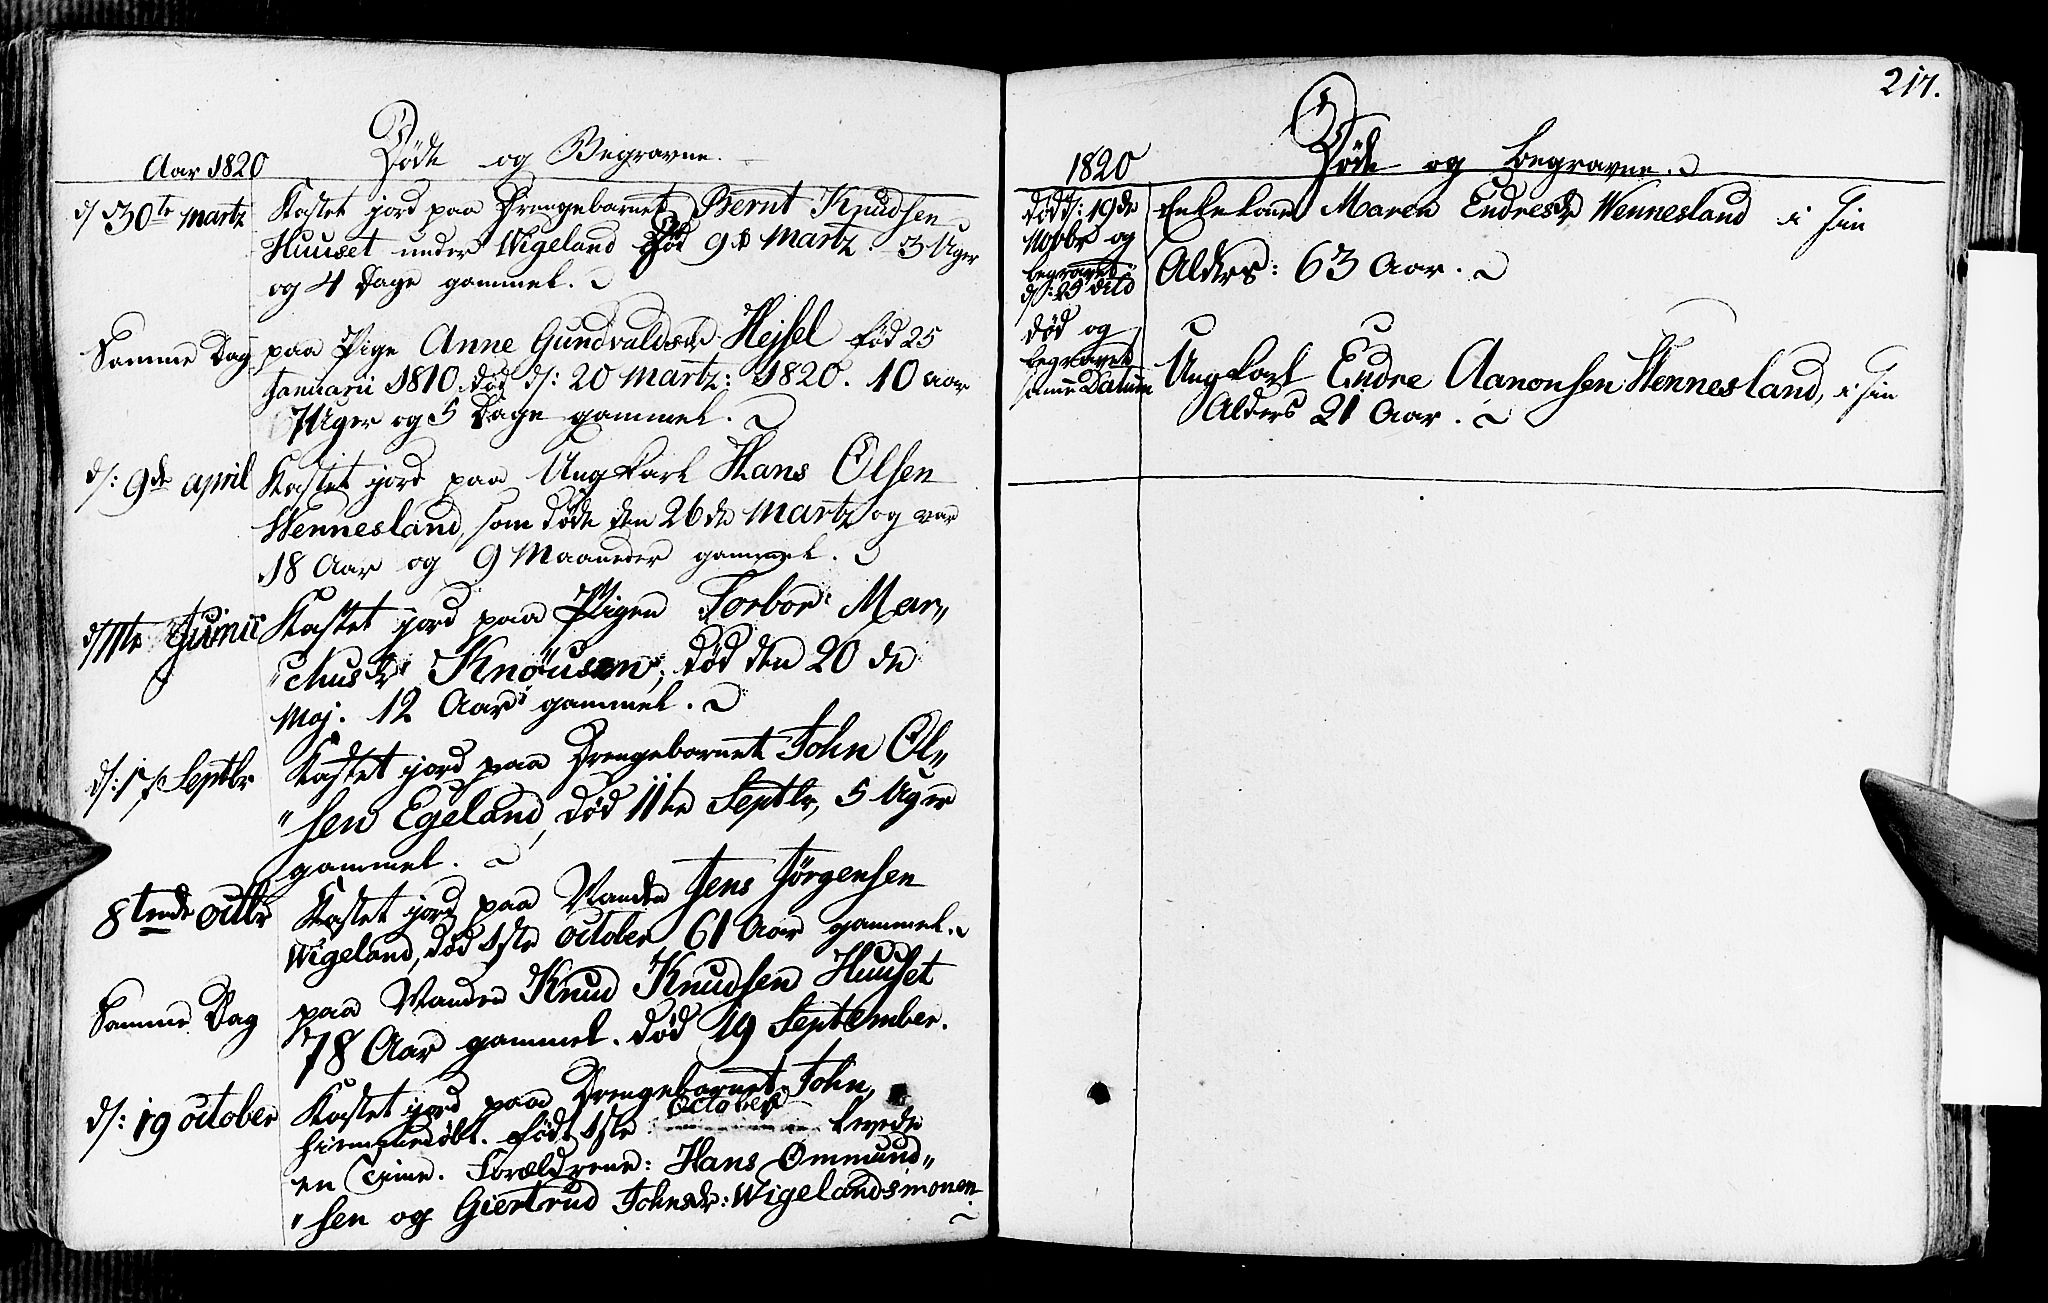 Aar 1820 Døde og Begravne.
d/ 30te Martz Kastet jord paa Drengebarnet Bernt Knudsen
Huuset under Wigeland død 9de Martz. 3 Uger
og 4 Dage gammel.
Samme Dag paa Pige Anne Gundvaldsdr Hejsel fød 25
Januarii 1810. død d/: 20 Martz: 1820. 10 Aar
7 Uger og 5 Dage gammel.
d/: 9de April Kastet jord paa Ungkarl Hans Olsen
Wennesland, som døde den 26de Martz og var
18 Aar og 9 Maaneder gammel.
d/ 11te Junii Kastet jord paa Pigen Torbor Mar„
„chusdr Knousen, død den 20de
Maj. 12 Aar gammel.
d/: 17 Septbr Kastet jord paa Drengebarnet John Ol„
„sen Egeland, død 11te Septbr, 5 Uger
gammel.
8tende Octbr Kastet jord paa Manden Jens Jørgensen
Wigeland, død 1ste October 61 Aar gammel.
Samme Dag paa Manden Knud Knudsen Huuset
78 Aar gammel. død 19 September.
d/: 19 October Kastet jord paa Drengebarnet John,
hiemmedøbt. født 1ste October levede
en Time. Forældrene: Hans Ommund„
„sen og Giertrud Johnsdr: Wigelandsmonen
217.
1820 Døde og begravne.
død d/: 19de Enkekone Maren Endresdr Wennesland i sin
Novbr og
begravet Alders: 63 Aar.
d/: 25 dito
død og
begravet Ungkarl Endre Aanonsen Wennesland, i sin
samme Datum Alders 21 Aar.